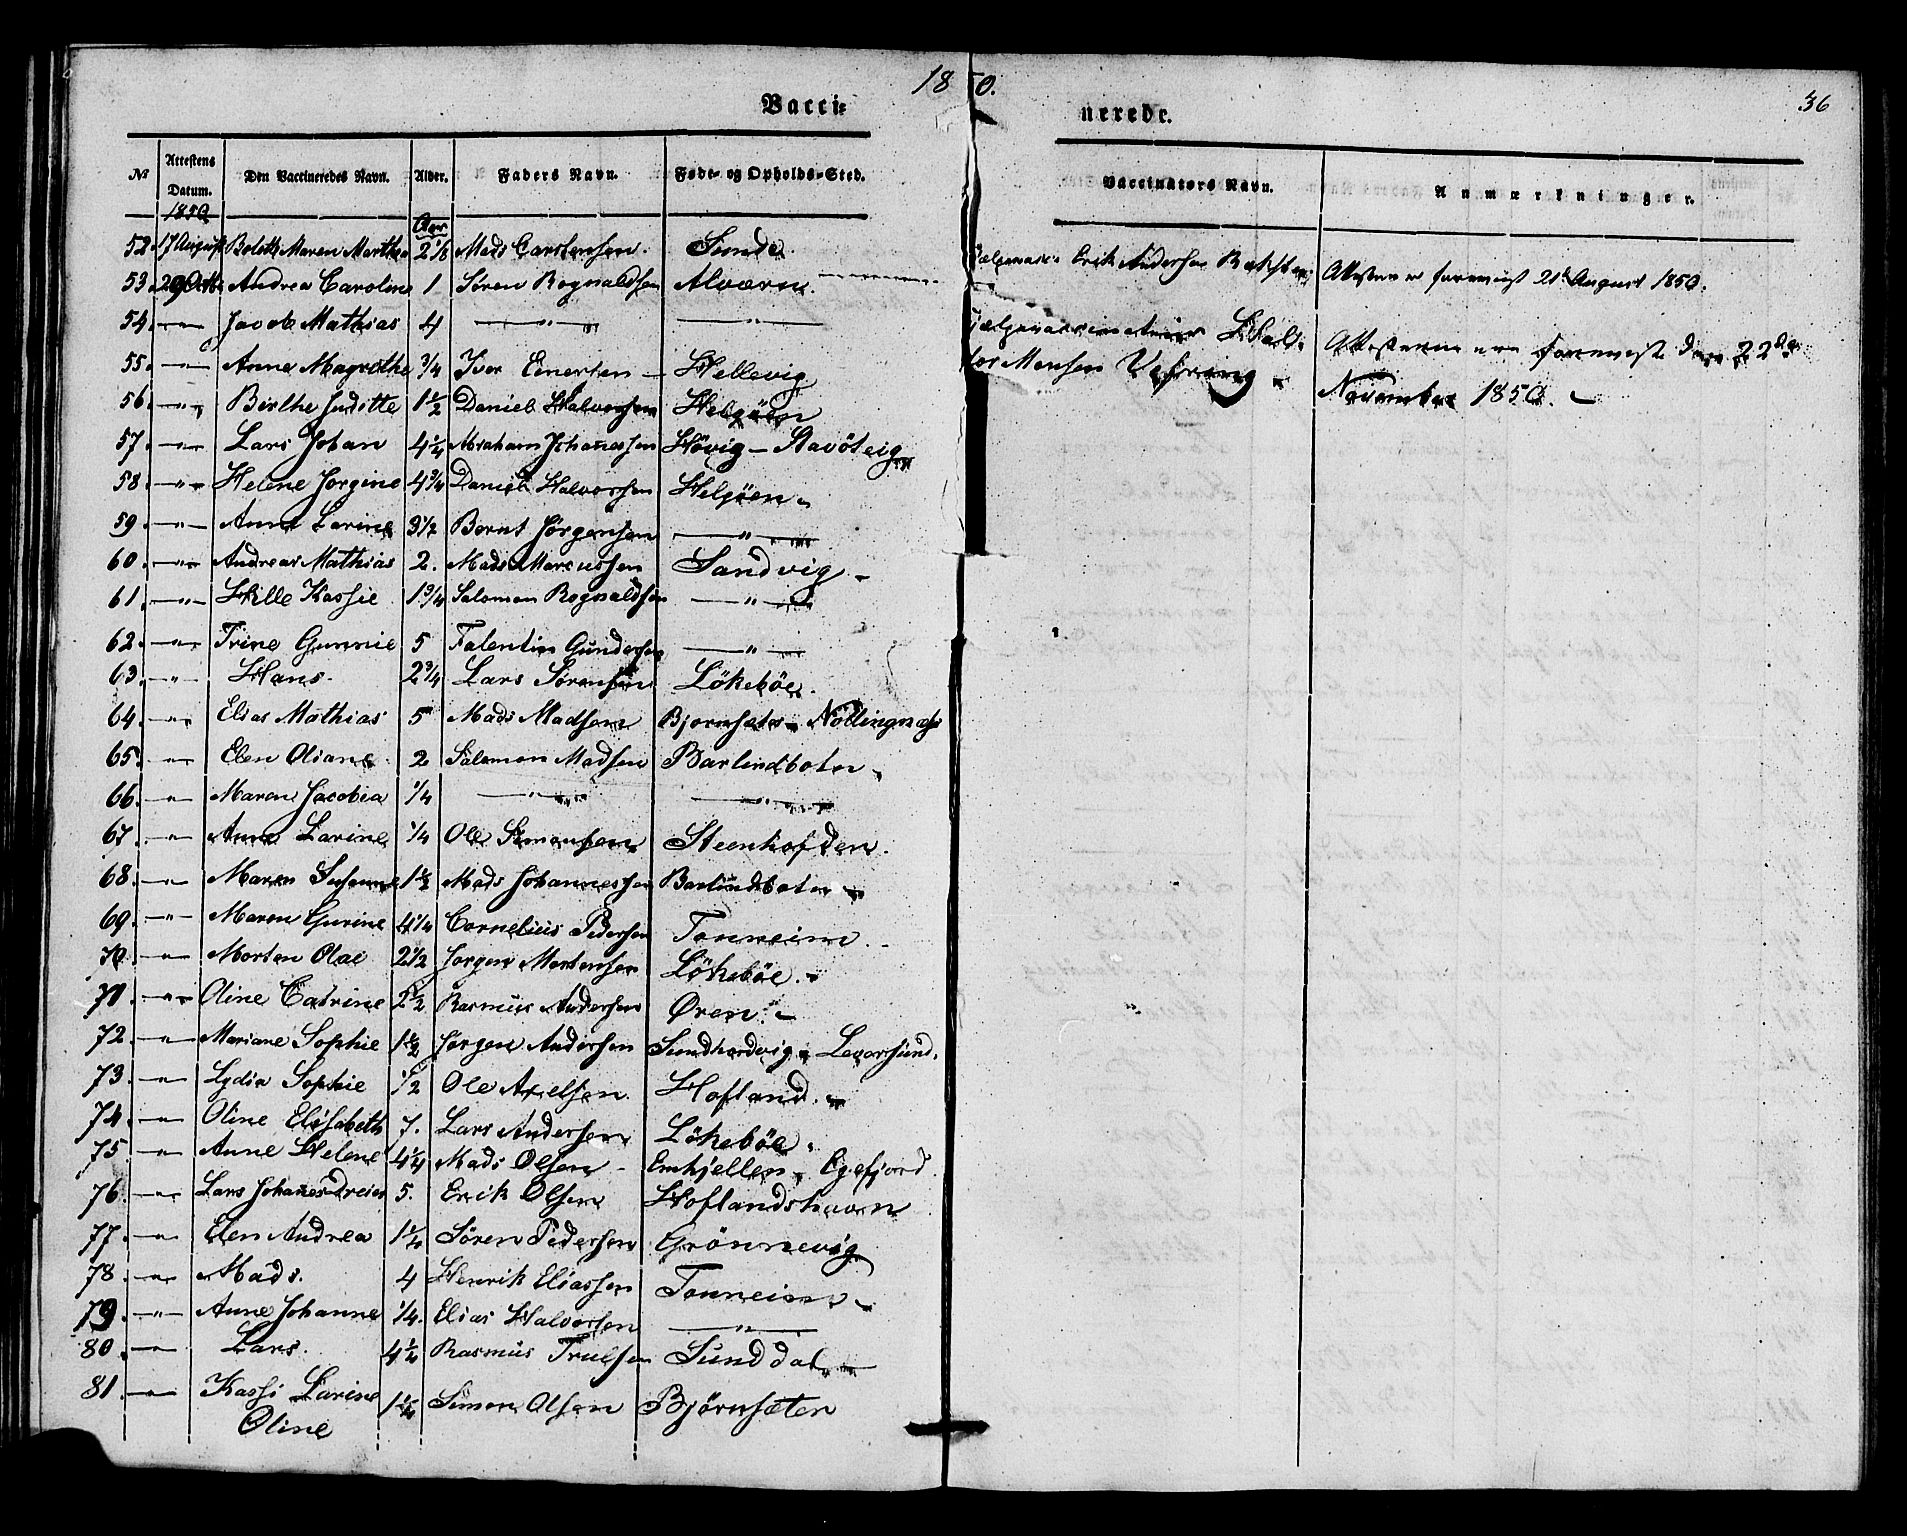 1850.
36
Vacci= nerede.
№ Attestens Datum. Den Vaccineredes Navn. Alder. Faders Navn. Føde- og Opholds-Sted. Vaccinateurs Navn. Anmærkninger.
1850 Aar
52. 17 August Bolette Maren Marthea 2 1/8 Mads Carstensen. Sunde. Erik Andersen Attesten er foreviist 21de August 1850.
53. 29 Andrea Caroline 1 Søren Rognaldsen Alværn.
54. " Jacob Mathias 4 " "
55. " Anne Magrethe 3/4 Iver Einersen Hellevig Attesterne ere foreviist den 22de
56. " Birthe Juditte 1 1/2 Daniel Halvorsen Helgøen November 1850.
57. " Lars Johan 4 1/4 Abraham Johannessen Høvig - Stavöteig
58. " Helene Jorgine 4 3/4 Daniel Halvorsen Helgøen
59. " Anne Larine 3 1/2 Bernt Jørgensen "
60. " Andreas Mathias 2. Mads Marcussen Sandvig
61. " Hille Kassie 1 3/4 Salomon Rognaldsen "
62. " Trine Gunnie 5 Falentin Gundersen "
63. " Hans. 2 3/4 Lars Sørensen Lökebøe.
64. " Elias Mathias 5 Mads Madsen Bjørnsæter - Nöclingnæs
65. " Elen Oliane 2 Salomon Madsen Barlindboten
66. " Maren Jacobia 1/4 " "
67. " Anne Larine 1/4 Ole Simonsen Steenhofden.
68. " Maren Susanne 1 1/2 Mads Johannessen Barlindboten
69. " Maren Gurine 4 1/4 Cornelius Pedersen Tonneim
70. " Morten Olai 2 1/2 Jørgen Mortensen Lökebøe.
71. " Oline Catrine 2 1/2 Rasmus Andersen Øren.
72. " Mariane Sophie 1 1/2 Jørgen Andersen Sundhordvig - Levarsund.
73. " Lydia Sophie 1/2 Ole Axelsen. Hofland.
74. " Oline Elisabeth 7. Lars Andersen Lökebøe
75. " Anne Helene 4 1/4 Mads Olsen Emhjellen, Egefjord.
76. " Lars Johanes Dreier 5. Erik Olsen Hoflandshavn
77. " Elen Andrea 1 1/4 Søren Pedersen Grönnevig
78. " Mads. 4 Henrik Eliassen Tonneim
79. " Anne Johanne 1/4. Elias Halvorsen "
80. " Lars. 4 1/4 Rasmus Truesen Sunddal
81. " Kassi Larine 1 1/4 Simon Olsen Bjørnsæten
Oline